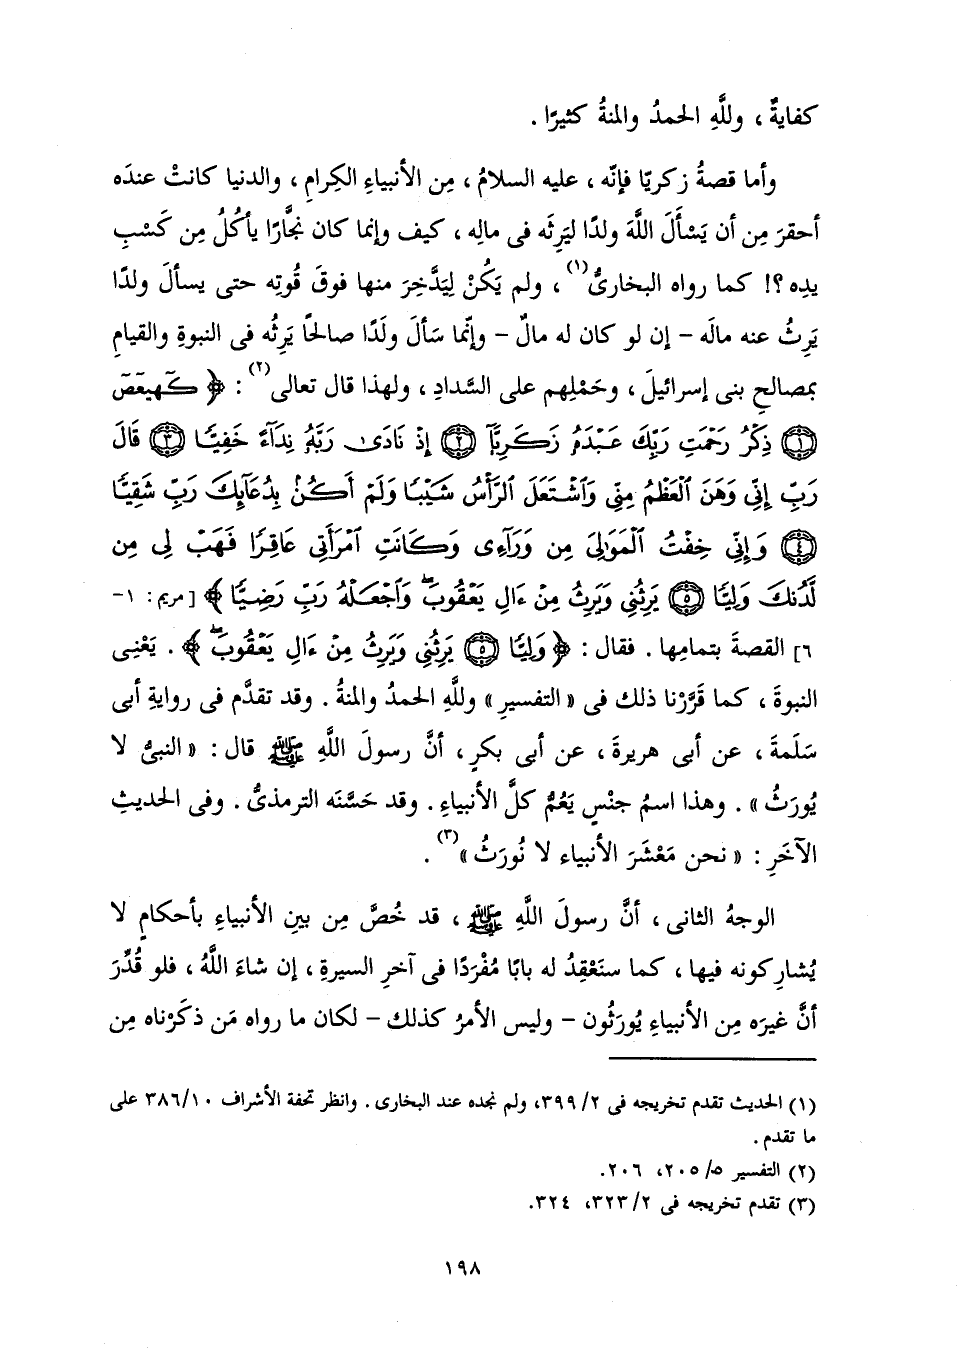 كفايةٌ ، وللَّهِ الحمدُ والمنةُ كثيرًا .
وأما قصةُ زكريّا فإنّه ، عليه السلامُ ، مِن الأنبياءِ الكِرامِ ، والدنيا كانتْ عندَه
أحقرَ مِن أن يَسْأَلَ اللَّهَ ولدًا ليَرِثَه فى مالِه ، كيف وإنما كان نجَّارًا يأكُلُ مِن كَسْبِ
يدِه ؟! كما رواه البخارىُّ(١) ، ولم يَكُنْ لِيَدَّخِرَ منها فوقَ قُوتِه حتى يسألَ ولدًا
يَرِثُ عنه مالَه – إن لو كان له مالٌ – وإنّما سَألَ ولَدًا صالحًا يَرِثُه فى النبوةِ والقيامِ
بمصالحِ بنى إسرائيلَ ، وحَمْلِهم على السَّدادِ ، ولهذا قال تعالى(٢) : ﴿ كٓهيعٓصٓ
(١) ذِكْرُ رَحْمَتِ رَبِّكَ عَبْدَهُۥ زَكَرِيَّآ (٢) إِذْ نَادَىٰ رَبَّهُۥ نِدَآءً خَفِيًّا (٣) قَالَ
رَبِّ إِنِّى وَهَنَ ٱلْعَظْمُ مِنِّى وَٱشْتَعَلَ ٱلرَّأْسُ شَيْبًا وَلَمْ أَكُنۢ بِدُعَآئِكَ رَبِّ شَقِيًّا
(٤) وَإِنِّى خِفْتُ ٱلْمَوَٰلِىَ مِن وَرَآءِى وَكَانَتِ ٱمْرَأَتِى عَاقِرًا فَهَبْ لِى مِن
لَّدُنكَ وَلِيًّا (٥) يَرِثُنِى وَيَرِثُ مِنْ ءَالِ يَعْقُوبَ ۖ وَٱجْعَلْهُ رَبِّ رَضِيًّا ﴾ [ مريم : ١ –
٦ ] القصةَ بتمامِها . فقال : ﴿ وَلِيًّا (٥) يَرِثُنِى وَيَرِثُ مِنْ ءَالِ يَعْقُوبَ ۖ ﴾ . يَعْنِى
النبوةَ ، كما قَرَّرْنا ذلك فى « التفسيرِ » وللَّهِ الحمدُ والمنةُ . وقد تقدَّم فى روايةِ أبى
سَلَمةَ ، عن أبى هريرةَ ، عن أبى بكرٍ ، أنَّ رسولَ اللَّهِ ﷺ قال : « النبىُّ لا
يُورَثُ » . وهذا اسمُ جنْسٍ يَعُمُّ كلَّ الأنبياءِ . وقد حَسَّنَه الترمذىُّ . وفى الحديثِ
الآخَرِ : « نحن مَعْشَرَ الأنبياءِ لا نُورَثُ »(٣) .
الوجهُ الثانى ، أنَّ رسولَ اللَّهِ ﷺ ، قد خُصَّ مِن بينِ الأنبياءِ بأحكامٍ لا
يُشارِكونه فيها ، كما سنَعْقِدُ له بابًا مُفْرَدًا فى آخرِ السيرةِ ، إن شاءَ اللَّهُ ، فلو قُدِّرَ
أنَّ غيرَه مِن الأنبياءِ يُورَثُون – وليس الأمرُ كذلك – لكان ما رواه مَن ذكَرْناه مِن
(١) الحديث تقدم تخريجه فى ٣٩٩/٢، ولم نجده عند البخارى . وانظر تحفة الأشراف ٣٨٦/١٠ على
ما تقدم .
(٢) التفسير ٢٠٥/٥، ٢٠٦.
(٣) تقدم تخريجه فى ٣٢٣/٢، ٣٢٤.
١٩٨